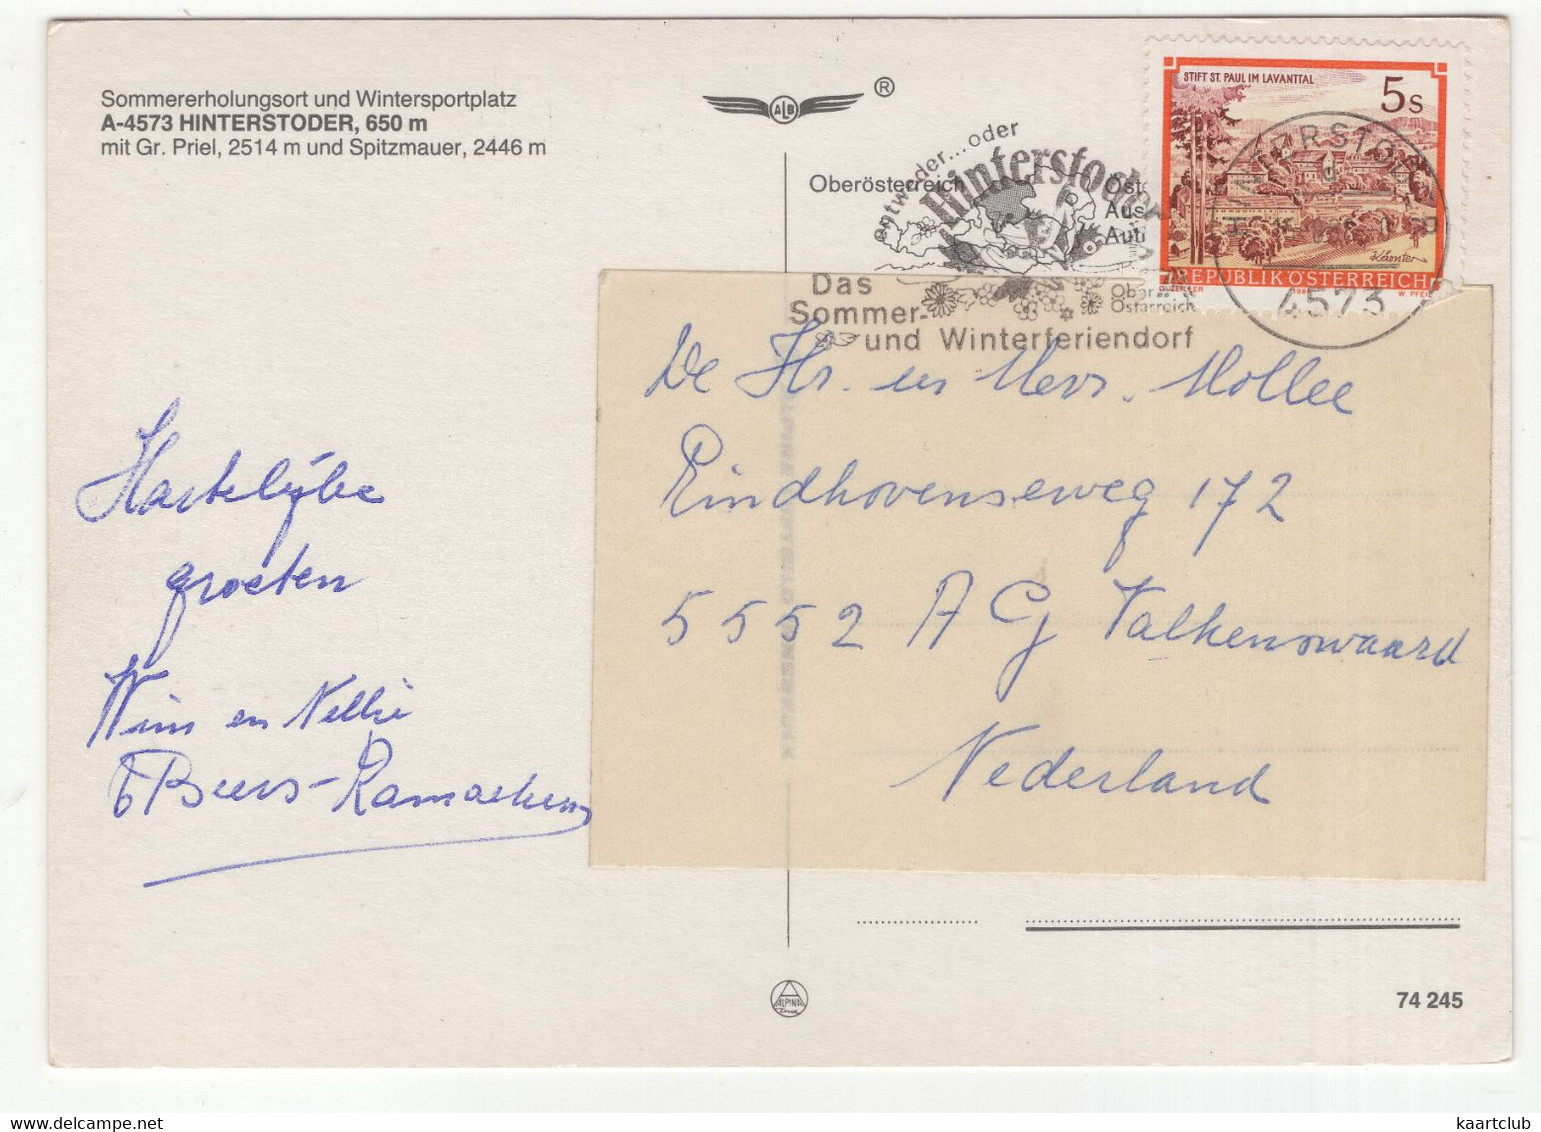 Sommererholungsort und Wintersportplatz
A-4573 HINTERSTODER, 650 m
mit Gr. Priel, 2514 m und Spitzmauer, 2446 m
ALB
®
Oberösterreich
entweder...oder
Hinterstoder
Das
Sommer-
und Winterferiendorf
STIFT ST. PAUL IM LAVANTTAL
5s
Kärnten
REPUBLIK ÖSTERREICH
W. PFEILER
HINTERSTODER
4573
De Hr. en Mevr. Mollee
Eindhovenseweg 172
5552 AG Valkenswaard
Nederland
Hartelijke
groeten
Wim en Nellie
Beers-Ramaekers
ALPINA
74 245
kaartclub